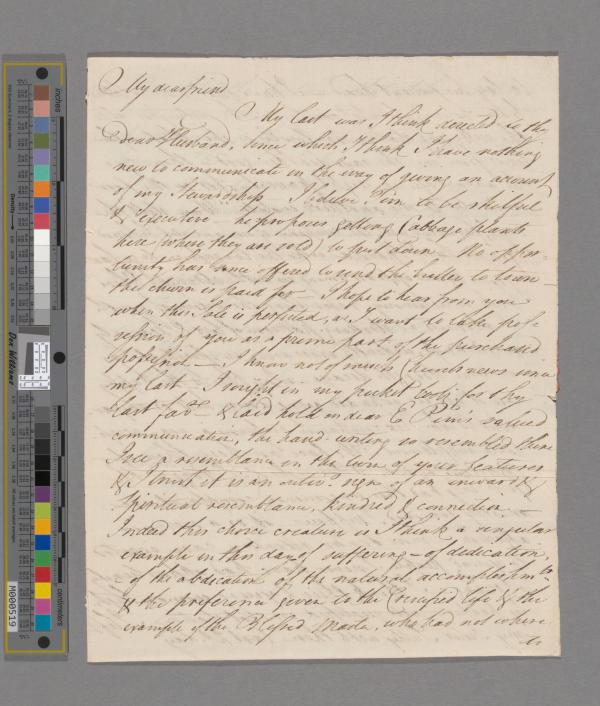 My dear friend
My last was I think directed to the
dear Husband, since which I think I have nothing
new to communicate in the way of giving an account
of my Stewardship I believe Tim to be skilful
& executive he proposes getting Cabbage plants
here (where they are sold) to put down - No oppor-
tunity has since offered to send the barley to town -
the churn is paid for - I hope to hear from you
when this Sale is perfected, as I want to take pos-
session of you as a prime part of the purchased
possession - I know not of much Church news since
my last I sought in my pocket book for thy
last fav.r & laid hold on dear E Pim's valued
communication, the hand-writing so resembled thine
I see a resemblance in the turn of your features
& I trust it is an outw.d sign of an inward &
Spiritual resemblance, kindred & connection -
Indeed this choice creature is I think a singular
example in this day of suffering - of dedication,
- of the abdication of the natural accomplishm.ts
& the preference given to the Crucified life & the
example of the Blessed Master, who had not where
to
inches
centimeters
Don Williams
M000519